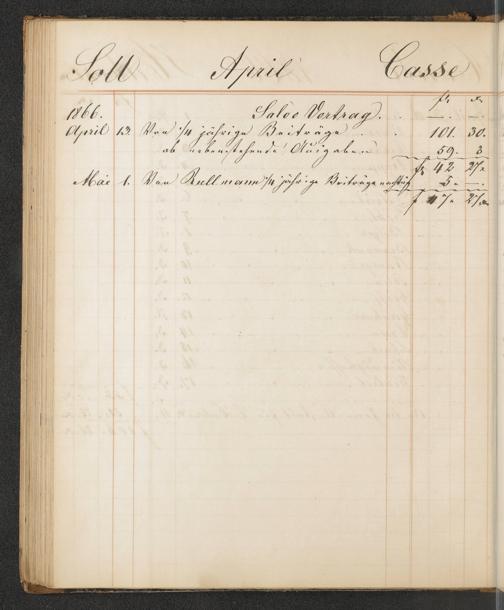 Soll April Casse
fr. x.
1866. Saldo Vortrag. . — —
April 13. Von 1/4 jährige Beiträge . . 101. 30.
ab nebenstehende Ausgaben 59. 3
fr 42 27 x
Mai 1. Von Rullmann 1/4 jährige Beiträge 5 — —
f 47 27 x